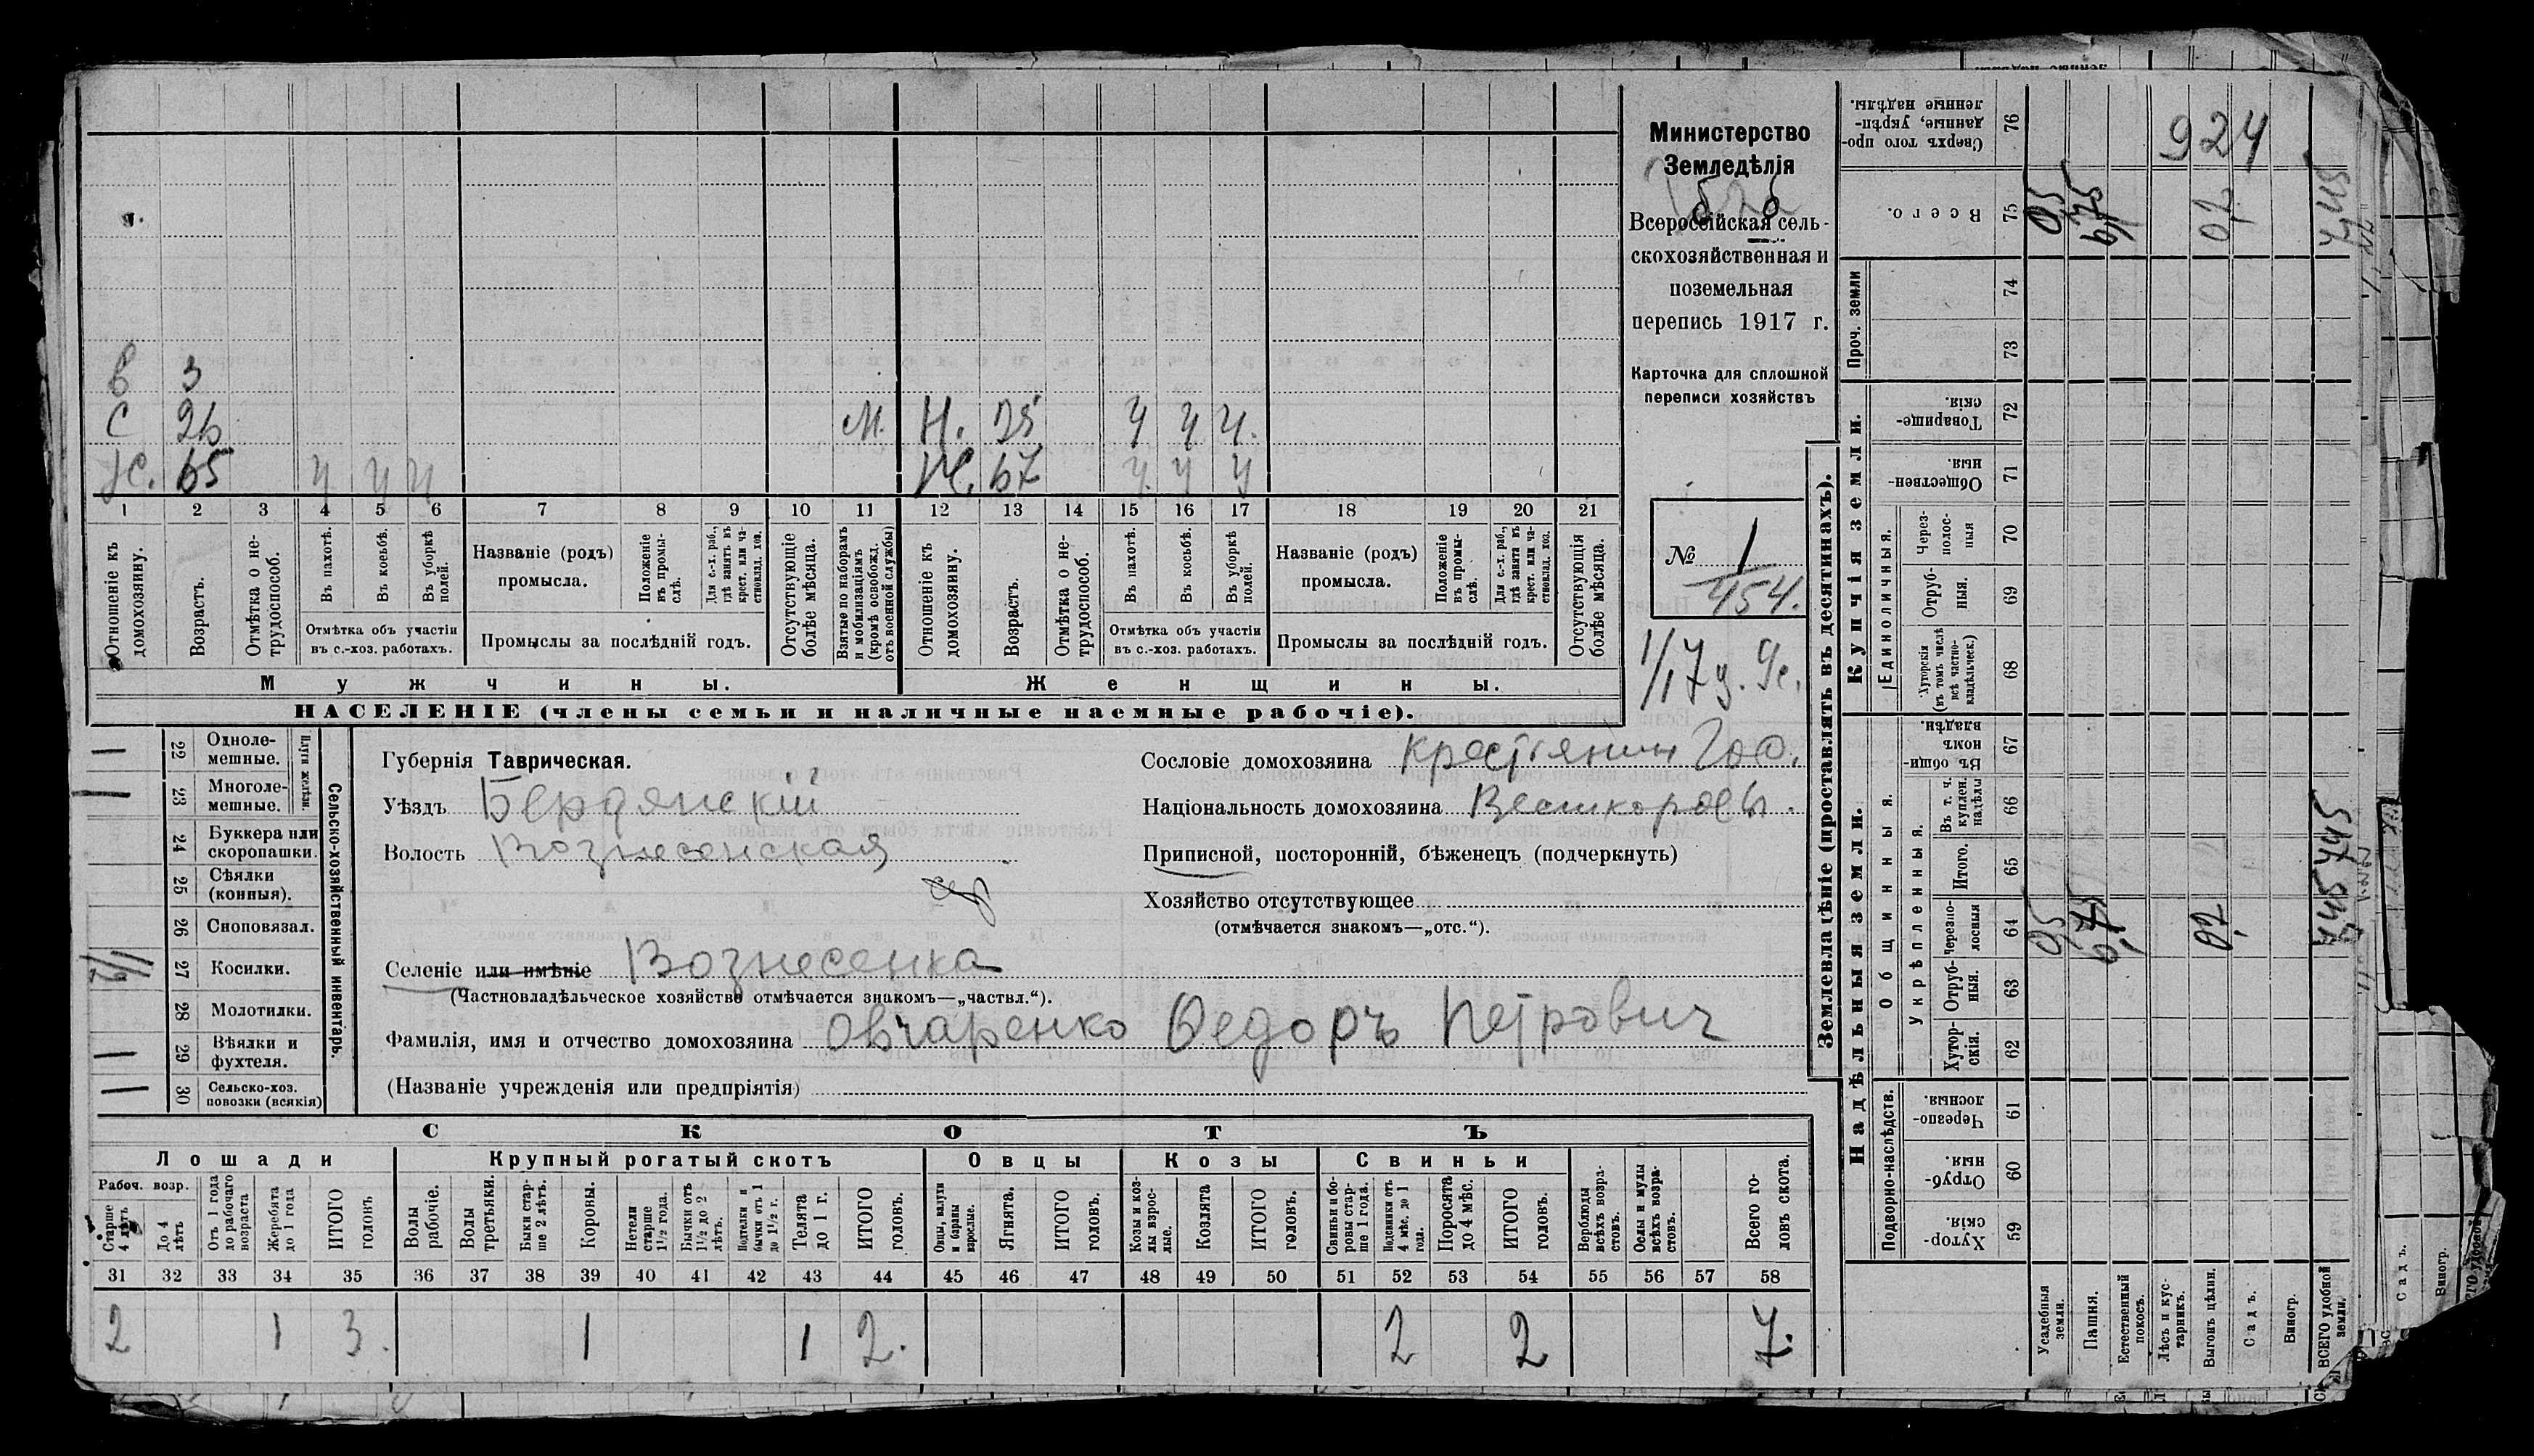 Министерство
Земледѣлія
Всеросcійская сель-
скохозяйственная и
поземельная
перепись 1917 г.
Карточка для сплошной
переписи хозяйствъ
№ 1
454.
1/17 г.
в 3
С 26 М. Н. 25 ч ч ч.
Х. 65 ч ч ч Ж. 67 ч ч ч
1 2 3 4 5 6 7 8 9 10 11 12 13 14 15 16 17 18 19 20 21
Отношеніе къ домохозяину.
Возрастъ.
Отмѣтка о не-трудоспособ.
Въ пахотѣ.
Въ косьбѣ.
Въ уборкѣ полей.
Отмѣтка объ участіи
въ с.-хоз. работахъ.
Названіе (родъ)
промысла.
Положеніе въ промы-слѣ.
Для с.-х. раб., гдѣ занятъ въ крест. или ча-стновлад. хоз.
Промыслы за послѣдній годъ.
Отсутствующіе болѣе мѣсяца.
Взятые по наборамъ и мобилизаціямъ (кромѣ освобожд. отъ военной службы)
Отношеніе къ домохозяину.
Возрастъ.
Отмѣтка о не-трудоспособ.
Въ пахотѣ.
Въ косьбѣ.
Въ уборкѣ полей.
Отмѣтка объ участіи
въ с.-хоз. работахъ.
Названіе (родъ)
промысла.
Положеніе въ промы-слѣ.
Для с.-х. раб., гдѣ занята въ крест. или ча-стновлад. хоз.
Промыслы за послѣдній годъ.
Отсутствующія болѣе мѣсяца.
Мужчины. Женщины.
НАСЕЛЕНІЕ (члены семьи и наличные наемные рабочіе).
Сельско-хозяйственный инвентарь.
Плуги желѣзн.
1 22 Одноле-мешные.
1 23 Многоле-мешные.
24 Буккера или скоропашки.
25 Сѣялки (конныя).
26 Сноповязал.
27 Косилки.
28 Молотилки.
1 29 Вѣялки и фухтеля.
1 30 Сельско-хоз. повозки (всякія)
Губернія Таврическая.
Уѣздъ Бердянскій
Волость Вознесенская
Селеніе или имѣніе Вознесенка
(Частновладѣльческое хозяйство отмѣчается знакомъ—„частвл.“).
Фамилія, имя и отчество домохозяина Овчаренко Федоръ Петрович
(Названіе учрежденія или предпріятія)
Сословіе домохозяина крестьянин Гос.
Національность домохозяина Великороссы.
Приписной, посторонній, бѣженецъ (подчеркнуть)
Хозяйство отсутствующее
(отмѣчается знакомъ—„отс.“).
СКОТЪ
Лошади Крупный рогатый скотъ Овцы Козы Свиньи
Рабоч. возр.
Старше 4 лѣтъ
До 4 лѣтъ
Отъ 1 года до рабочаго возраста
Жеребята до 1 года
ИТОГО головъ
Волы рабочіе.
Волы третьяки.
Быки стар-ше 2 лѣтъ.
Коровы.
Нетели старше 1½ года.
Бычки отъ 1½ до 2 лѣтъ.
Подтелки и бычки отъ 1 до 1½ г.
Телята до 1 г.
ИТОГО головъ.
Овцы, валухи и бараны взрослые.
Ягнята.
ИТОГО головъ.
Козы и коз-лы взрос-лые.
Козлята
ИТОГО головъ.
Свиньи и бо-ровы стар-ше 1 года.
Подсвинки отъ 4 мѣс. до 1 года.
Поросята до 4 мѣс.
ИТОГО головъ.
Верблюды всѣхъ возра-стовъ.
Ослы и мулы всѣхъ возра-стовъ.
Всего го-ловъ скота.
31 32 33 34 35 36 37 38 39 40 41 42 43 44 45 46 47 48 49 50 51 52 53 54 55 56 57 58
2 1 3. 1 1 2. 2 2 7.
Землевладѣніе (проставлять въ десятинахъ).
Сверхъ того про-данные, укрѣп-ленные надѣлы. 76 924
Всего. 75 05 6,75 02 7,45
Проч. земли 74
73
Купчія земли.
Товарище-скія. 72
Обществен-ныя. 71
Единоличныя.
Через-полос-ныя 70
Отруб-ныя. 69
Хуторскія (въ томъ числѣ всѣ частно-владѣльческ.) 68
Надѣльныя земли.
Общинныя.
Въ общи-номъ владѣн. 67
Укрѣпленныя.
Въ т. ч. куплен. надѣлы 66
Итого. 65
Черезпо-лосныя 64 05 6,75 02
Отруб-ныя. 63
Хутор-скія. 62
Подворно-наслѣдств.
Черезпо-лосныя. 61
Отруб-ныя. 60
Хутор-скія. 59
Усадебныя земли.
Пашня.
Естественный покосъ.
Лѣсъ и кус-тарникъ.
Выгонъ цѣлин.
Садъ.
Виногр.
ВСЕГО удобной земли.
Садъ.
Виногр.